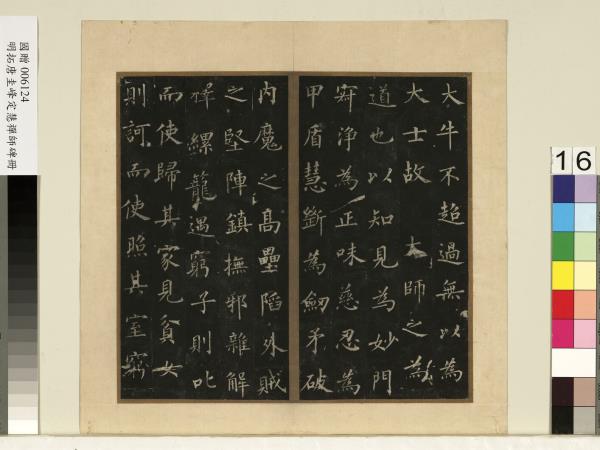 大牛不超過無以為
大士故 大師之為
道也以知見為妙門
寂淨為正味慈忍為
甲盾慧斷為劒矛破
內魔之高壘陷外賊
之堅陣鎮撫邪雜解
釋縲籠遇窮子則叱
而使歸其家見貧女
則訶而使照其室窮
國贈 006124
明拓唐圭峰定慧禪師碑冊
16